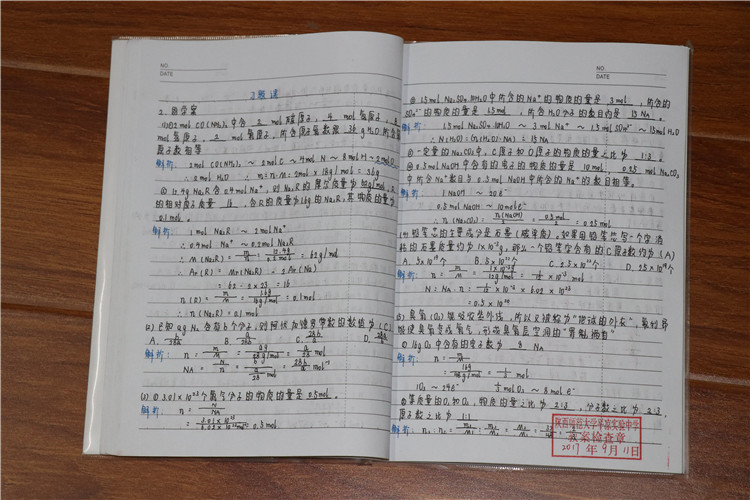 NO.
DATE
习题课
2. 自学案
(1)①2mol CO(NH₂)₂中含 2 mol碳原子, 4 mol氮原子, 8
mol氢原子, 2 mol氧原子,所含原子氧数与 36 g H₂O所含氧
原子数相等
解析: 2mol CO(NH₂)₂ ~ 2mol C ~ 4mol N ~ 8mol H ~ 2mol O
∴ 2mol H₂O ∴ m=n·M=2mol×18g/mol=36g
② 12.4g Na₂R含0.4mol Na⁺,则Na₂R的摩尔质量为 62g/mol,R
的相对原子质量 16 ,含R的质量为1.6g的Na₂R,其物质的量为
0.1mol。
解析: 1mol Na₂R ~ 2mol Na⁺
∴ 0.4mol Na⁺ ~ 0.2mol Na₂R
∴ M(Na₂R)=m/n=12.4g/0.2mol=62g/mol
∴ Ar(R)=Mr(Na₂R)-2Ar(Na)
=62-2×23=16
n(R)=m/M=1.6g/16g/mol=0.1mol
∴ n(Na₂R)=0.1mol
(2) 已知 a g N₂ 含有b个分子,则阿伏加德罗常数的数值为(C)
A. B. C. 28b/a D.
解析: n=m/M=ag/28g/mol=a/28 mol
NA=N/n=b/(a/28 mol)=28b/a mol⁻¹
(3) ① 3.01×10²³个氯气分子的物质的量是 0.5mol。
解析: n=N/NA
=3.01×10²³/6.02×10²³mol⁻¹=0.5mol
NO.
DATE
② 1.5mol Na₂SO₄·10H₂O中所含的Na⁺的物质的量是 3mol ,所含的
SO₄²⁻的物质的量是 1.5mol ,所含H₂O分子的数目约是 15NA。
解析: 1.5mol Na₂SO₄·10H₂O ~ 3mol Na⁺ ~ 1.5mol SO₄²⁻ ~ 15mol H₂O
∴ N(H₂O)=n(H₂O)·NA=15NA
③ 一定量的Na₂CO₃中,C原子和O原子的物质的量之比为 1:3 。
④ 0.5mol NaOH中含有的电子的物质的量是 10mol, 0.25 mol Na₂CO₃
中所含Na⁺数目与0.5mol NaOH中所含的Na⁺的数目相等。
解析: 1 NaOH ~ 20e⁻
0.5mol NaOH ~ 10mol e⁻
∴ n(Na₂CO₃)=n(NaOH)/2=0.5mol/2=0.25mol
(4) 铅笔芯的主要成分是石墨(碳单质)。如果用铅笔芯写一个字消
耗的石墨质量约为1×10⁻³g,那么一个铅笔字含有的C原子数约为(A)
A. 5×10¹⁹个 B. 5×10²²个 C. 2.5×10²²个 D. 2.5×10¹⁹个
解析: n=m/M=1×10⁻³g/12g/mol=1/12×10⁻³mol
N=NA·n=1/12×10⁻³×6.02×10²³
=0.5×10²⁰
(5) 臭氧(O₃)能吸收紫外线,所以又被称为
使臭氧变成氧气,形成臭氧层空洞的
① 16g O₃中含有的电子数为 8 NA
解析: n=m/M
=16g/48g/mol=1/3mol
1O₃ ~ 24e⁻ 1/3mol O₃ ~ 8mol e⁻
② 等质量的O₂和O₃,物质的量之比为 2:3 ,分子数之比为 2:3,
原子数之比为 1:1
教案检查章
2017年9月11日